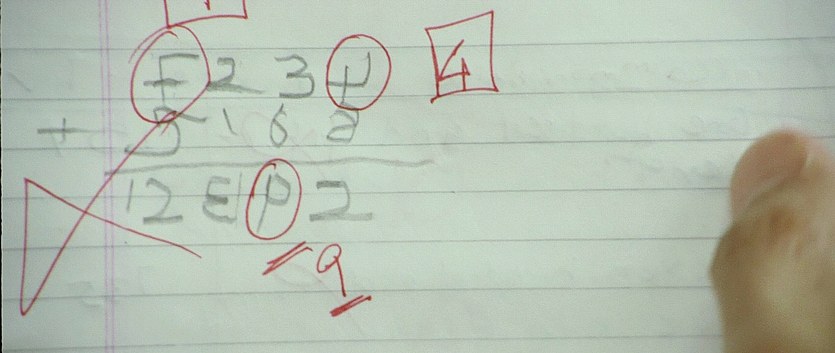 F 2 3 U 4
+ 5 1 6 8
12 E P 2
9